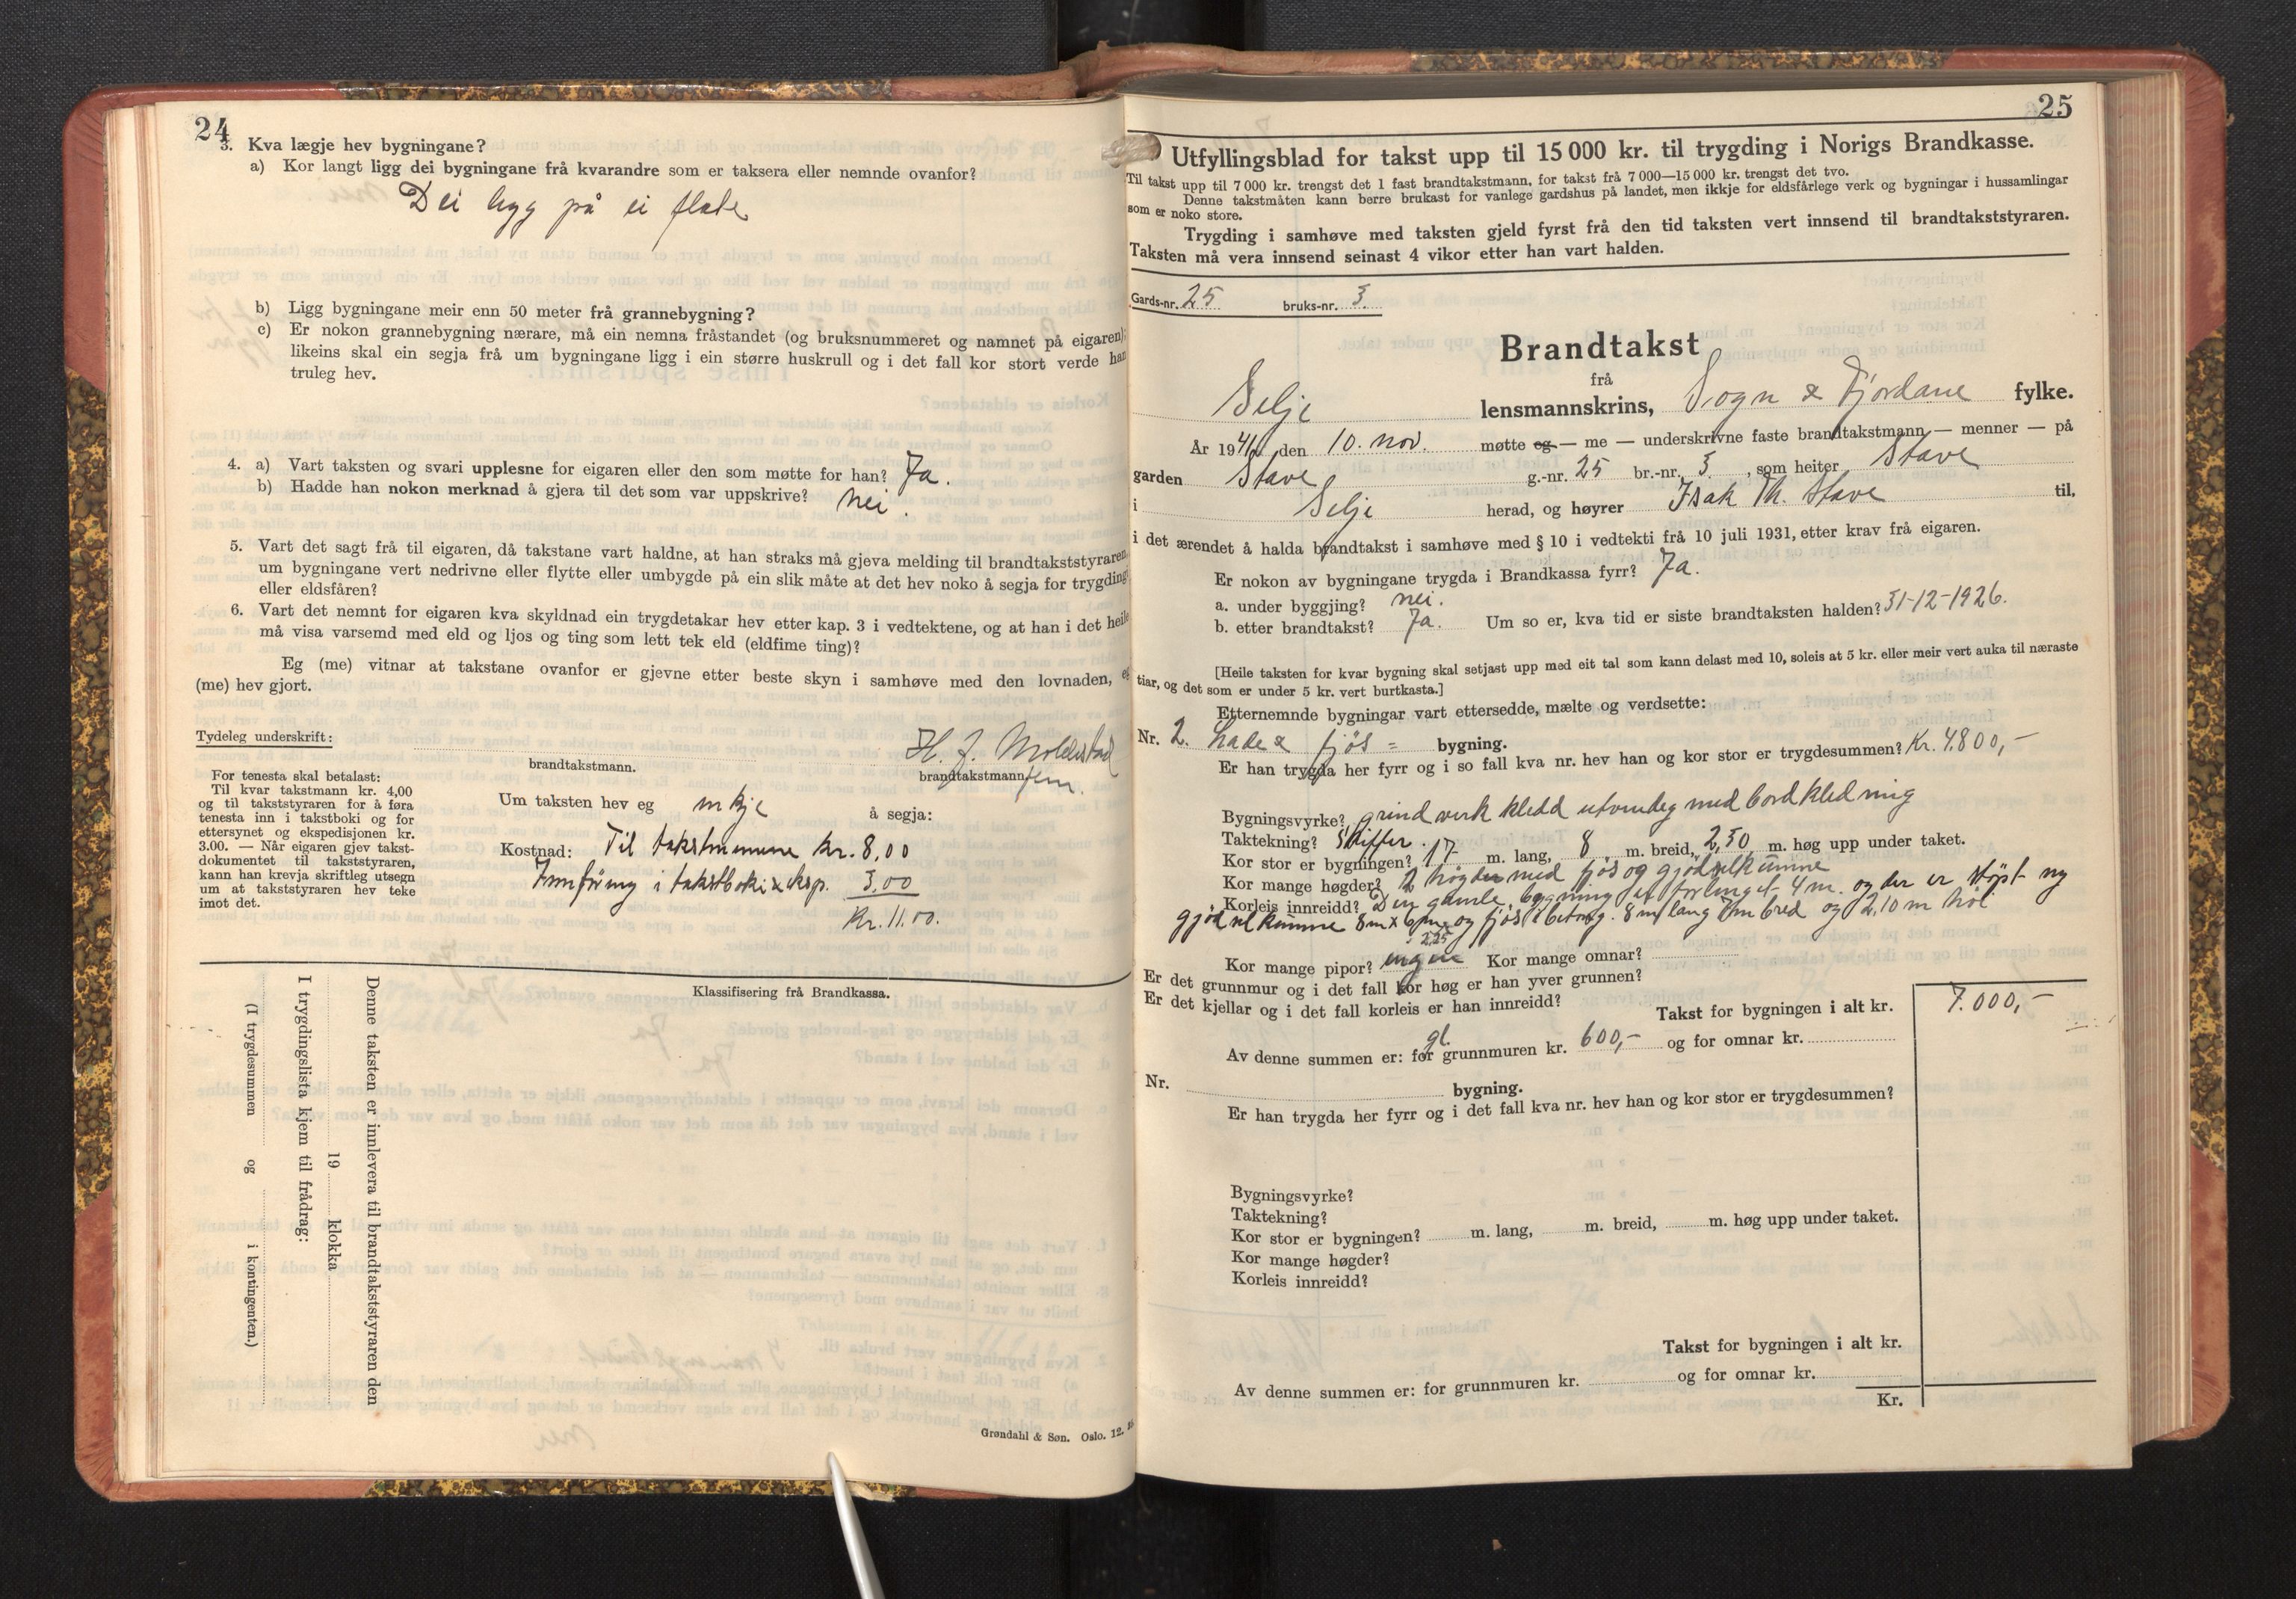 24
3. Kva lægje hev bygningane?
a) Kor langt ligg dei bygningane frå kvarandre som er taksera eller nemnde ovanfor?
Dei ligg på ei flate
b) Ligg bygningane meir enn 50 meter frå grannebygning?
c) Er nokon grannebygning nærare, må ein nemna fråstandet (og bruksnummeret og namnet på eigaren);
likeins skal ein segja frå um bygningane ligg i ein større huskrull og i det fall kor stort verde han
truleg hev.
4. a) Vart taksten og svari upplesne for eigaren eller den som møtte for han? Ja.
b) Hadde han nokon merknad å gjera til det som var uppskrive? Nei.
5. Vart det sagt frå til eigaren, då takstane vart haldne, at han straks må gjeva melding til brandtakststyraren,
um bygningane vert nedrivne eller flytte eller umbygde på ein slik måte at det hev noko å segja for trygding
eller eldsfåren?
6. Vart det nemnt for eigaren kva skyldnad ein trygdetakar hev etter kap. 3 i vedtektene, og at han i det heile
må visa varsemd med eld og ljos og ting som lett tek eld (eldfime ting)?
Eg (me) vitnar at takstane ovanfor er gjevne etter beste skyn i samhøve med den lovnaden, eg
(me) hev gjort.
Tydeleg underskrift:
brandtakstmann.
H. J. Moldestad
brandtakstmann
Um taksten hev eg inkje å segja:
For tenesta skal betalast:
Til kvar takstmann kr. 4,00
og til takststyraren for å føra
tenesta inn i takstboki og for
ettersynet og ekspedisjonen kr.
3.00. — Når eigaren gjev takst-
dokumentet til takststyraren,
kann han krevja skriftleg utsegn
um at takststyraren hev teke
imot det.
Kostnad: Til takstmennene kr. 8,00
Innføring i takstboki & eksp. 3,00
Kr. 11.00.
Klassifisering frå Brandkassa.
Denne taksten er innlevera til brandtakststyraren den
19 klokka
I trygdingslista kjem til frådrag:
(I trygdesummen og i kontingenten.)
Grøndahl & Søn. Oslo. 12.
25
Utfyllingsblad for takst upp til 15 000 kr. til trygding i Norigs Brandkasse.
Til takst upp til 7 000 kr. trengst det 1 fast brandtakstmann, for takst frå 7 000—15 000 kr. trengst det tvo.
Denne takstmåten kann berre brukast for vanlege gardshus på landet, men ikkje for eldsfårlege verk og bygningar i hussamlingar
som er noko store.
Trygding i samhøve med taksten gjeld fyrst frå den tid taksten vert innsend til brandtakststyraren.
Taksten må vera innsend seinast 4 vikor etter han vart halden.
Gards-nr. 25 bruks-nr. 3
Brandtakst
frå
Selje lensmannskrins, Sogn & Fjordane fylke.
År 1941 den 10. nov. møtte eg — me — underskrivne faste brandtakstmann — menner — på
garden Stave g.-nr. 25 br.-nr. 3, som heiter Stave
i Selje herad, og høyrer Isak Th. Stave til,
i det ærendet å halda brandtakst i samhøve med § 10 i vedtekti frå 10 juli 1931, etter krav frå eigaren.
Er nokon av bygningane trygda i Brandkassa fyrr? Ja.
a. under byggjing? nei.
b. etter brandtakst? Ja. Um so er, kva tid er siste brandtaksten halden? 31-12-1926.
[Heile taksten for kvar bygning skal setjast upp med eit tal som kann delast med 10, soleis at 5 kr. eller meir vert auka til næraste
tiar, og det som er under 5 kr. vert burtkasta.]
Etternemnde bygningar vart ettersedde, mælte og verdsette:
Nr. 2. Lade & fjøs = bygning.
Er han trygda her fyrr og i so fall kva nr. hev han og kor stor er trygdesummen? Kr. 4800,-
Bygningsvyrke? grindverk kledd utvendeg med bordkledning
Taktekning? Skiffer.
Kor stor er bygningen? 17 m. lang, 8 m. breid, 2,50 m. høg upp under taket.
Kor mange høgder? 2 høgder med fjøs og gjødselkumme
Korleis innreidd? Den gamle bygning er forlenget 4 m. og der er støpt ny
gjødselkumme 8m x 6m og fjøs i betong. 8 m lang 7m bred og 2,10 m høi
2,25
Kor mange pipor? ingen Kor mange omnar?
Er det grunnmur og i det fall kor høg er han yver grunnen?
Er det kjellar og i det fall korleis er han innreidd?
Takst for bygningen i alt kr. 7.000,-
gl.
Av denne summen er: for grunnmuren kr. 600,- og for omnar kr.
Nr. bygning.
Er han trygda her fyrr og i det fall kva nr. hev han og kor stor er trygdesummen?
Bygningsvyrke?
Taktekning?
Kor stor er bygningen? m. lang, m. breid, m. høg upp under taket.
Kor mange høgder?
Korleis innreidd?
Takst for bygningen i alt kr.
Av denne summen er: for grunnmuren kr. og for omnar kr.
Kr.